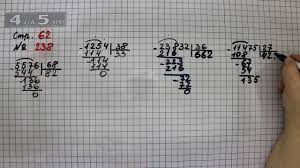 4 класс
Стр. 62
№ 238
5576 68
544 82
136
136
0
1254 38
114 33
114
114
0
23832 36
216 662
223
216
72
72
0
11475 27
108 42
67
54
135